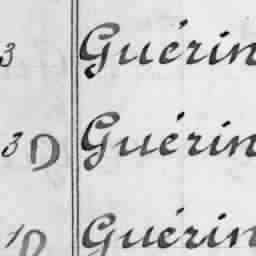 3 Guérin
3 D Guérin
1 D Guérin